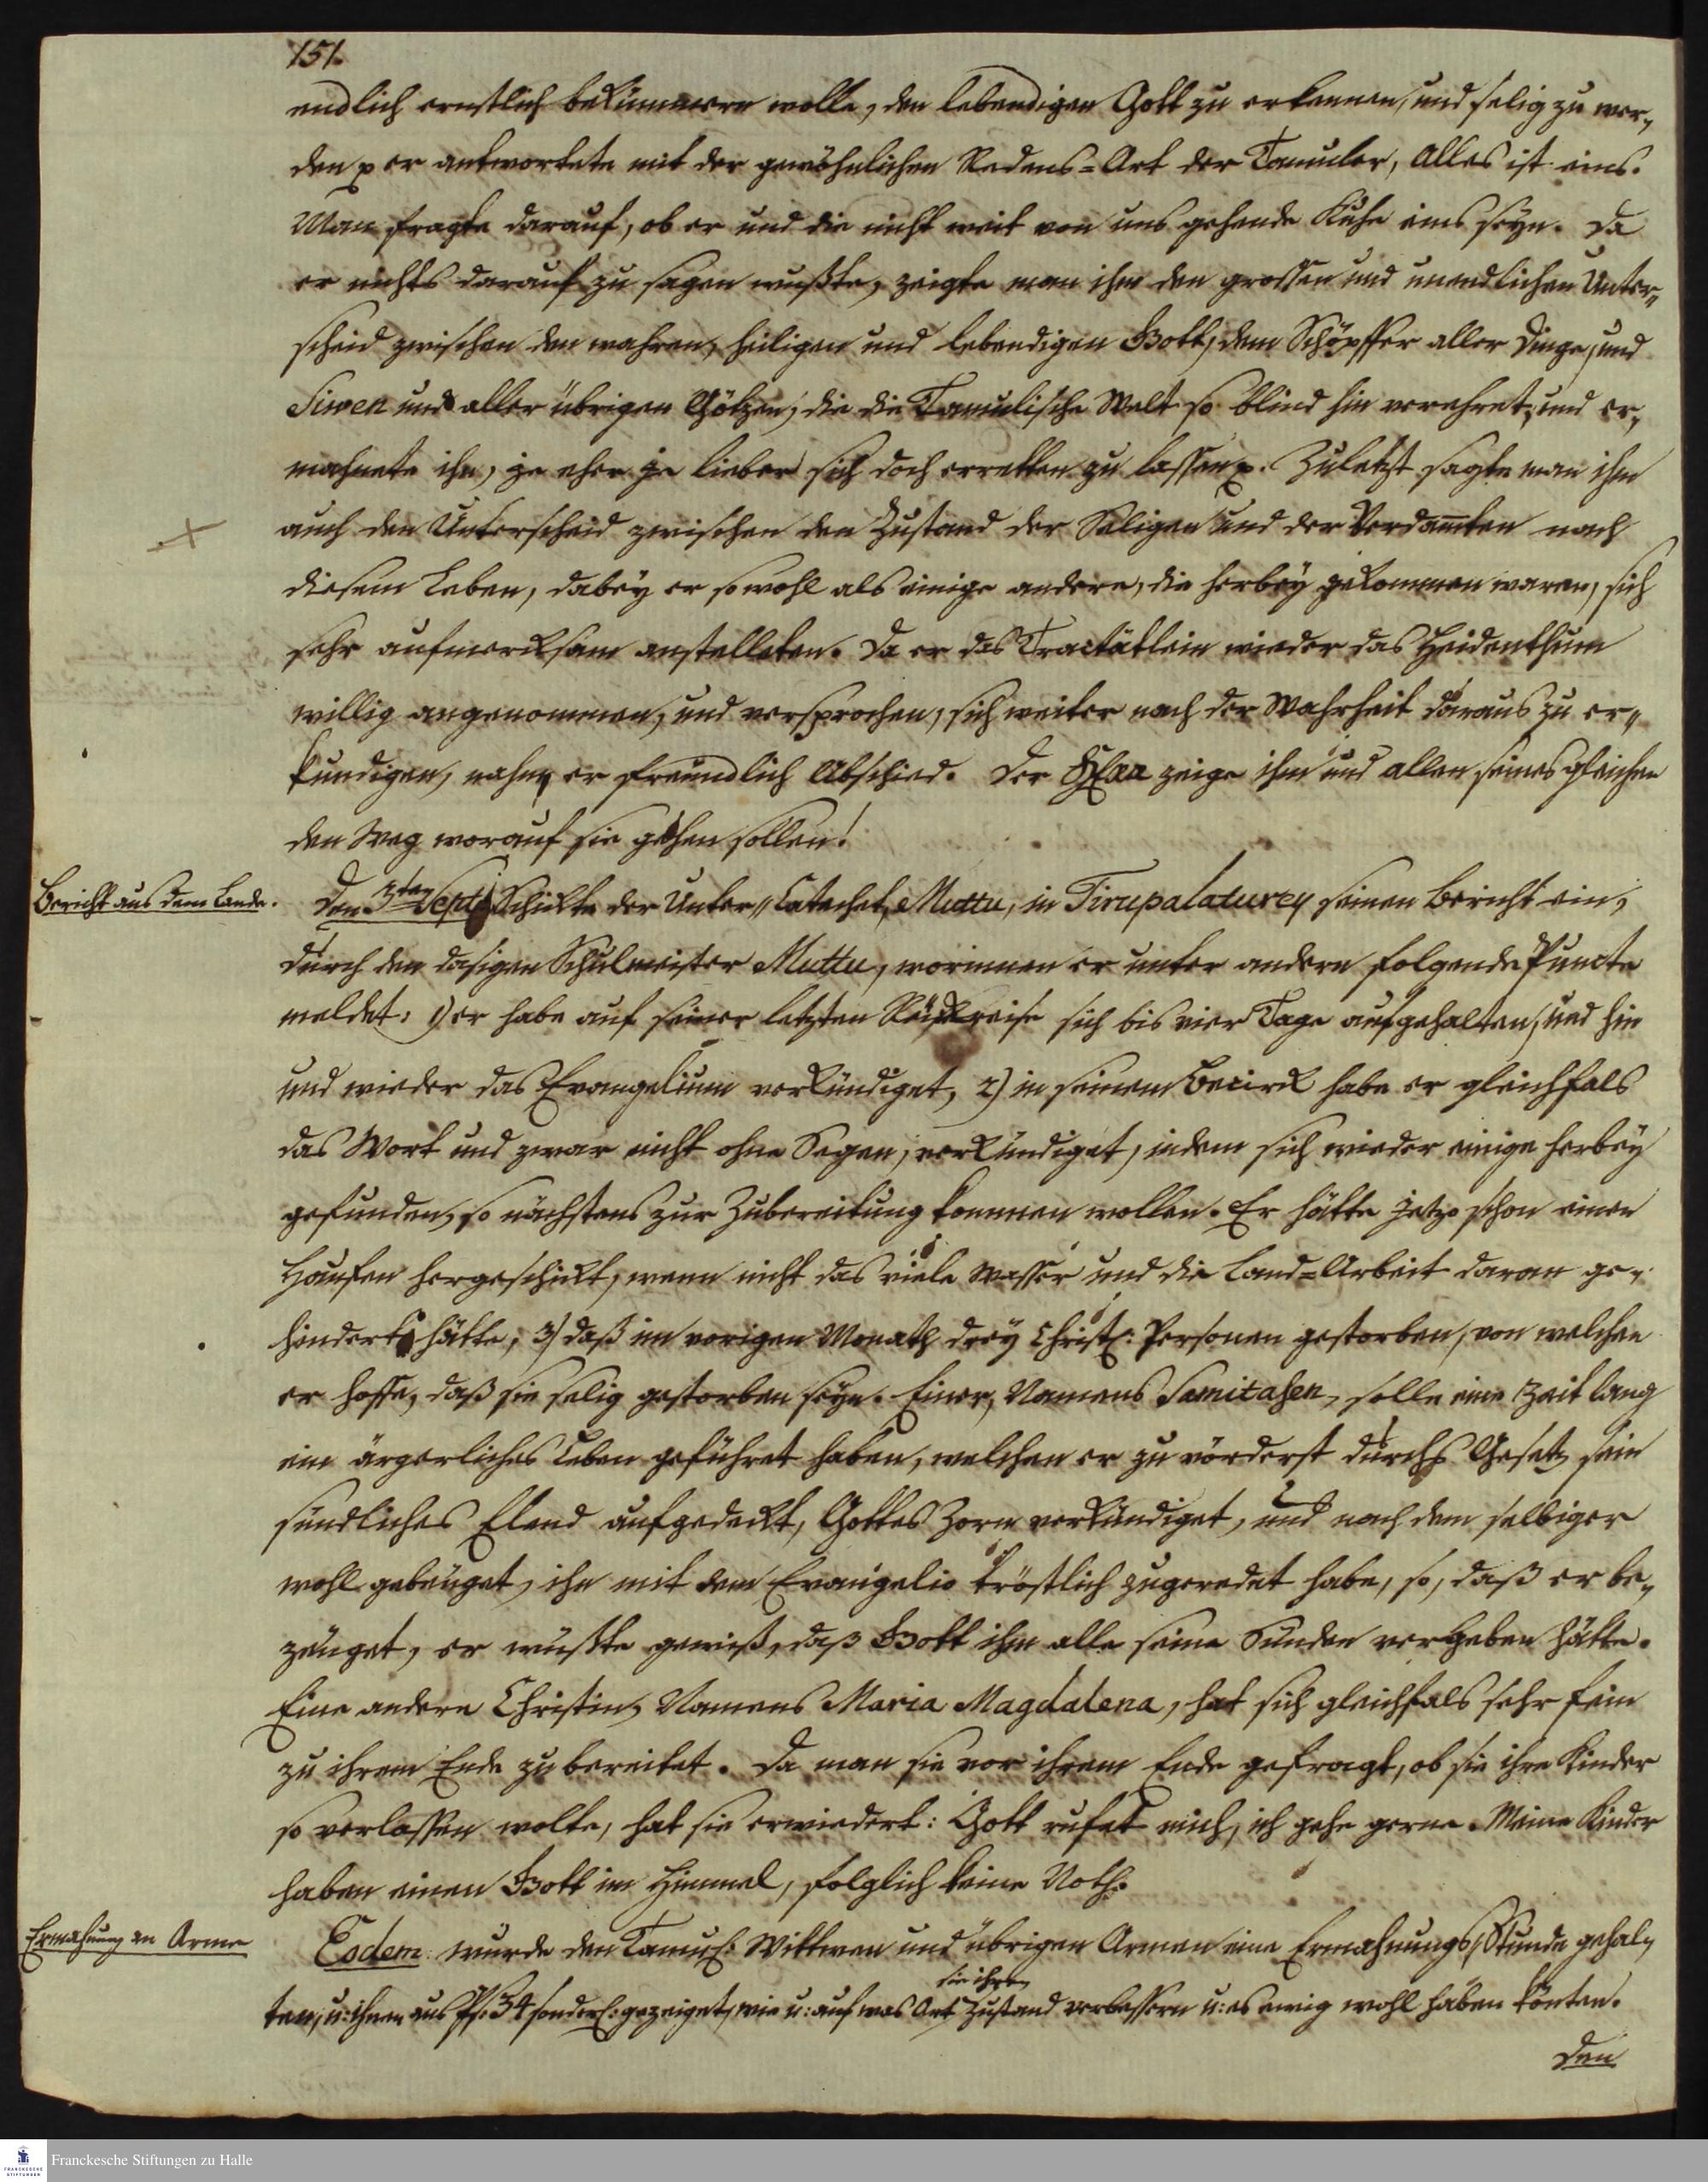 151.
endlich ernstlich bekümmern wolle, den lebendigen Gott zu erkennen, und selig zu wer-
den p er antwortete mit der gewöhnlichen Redens-Art der Tamuler, Alles ist eins.
Man fragte darauf, ob er und die nicht weit von uns gehende Kuhe eins seyn. Da
er nichts darauf zu sagen wußte, zeigte man ihm den grossen und unendlichen Unter-
scheid zwischen den wahren, heiligen und lebendigen Gott, dem Schöpffer aller Dinge, und
Siwen und aller übrigen Götzen, die die Tamulische Welt so blind hin verehret, und er-
mahnete ihn, je eher je lieber sich doch erretten zu lassen p. Zuletzt sagte man ihm
auch den Unterscheid zwischen den Zustand der Seligen und der Verdam̅ten nach
diesem Leben, dabey er sowohl als einige andere, die herbey gekommen waren, sich
sehr aufmercksam anstelleten. Da er das Tractätlein wieder das Heidenthum
willig angenommen, und versprochen, sich weiter nach der Wahrheit daraus zu er-
kundigen, nahm er freundlich Abschied. Der HErr zeige ihm und allen seines gleichen
den Weg worauf sie gehen sollen!
Bericht aus dem Lande.
Den 3ten Sept. Schickte der Unter-Catechet, Muttu, in Tirupalaturey seinen Bericht ein,
durch den dasigen Schulmeister Muttu, worinnen er unter andern folgende Puncte
meldet: 1) er habe auf seiner letzten Rückreise sich bis vier Tage aufgehalten, und hin
und wieder das Evangelium verkündiget, 2) in seinem Bezirck habe er gleichfals
das Wort und zwar nicht ohne Segen, verkündiget, indem sich wieder einige herbey
gefunden, so nächstens zur Zubereitung kommen wollen. Er hätte jetzo schon einen
Haufen hergeschickt, wenn nicht das viele Wasser und die Land-Arbeit daran ge-
hindert hätte, 3) daß im vorigen Monath drey Christl: Personen gestorben, von welchen
er hoffe, daß sie selig gestorben seyn. Einer, Namens Samitasen, solle eine Zeit lang
ein ärgerliches Leben geführet haben, welchen er zu vörderst durchs Gesetz sein
sündliches Elend aufgedeckt, Gottes Zorn verkündiget, und nach dem selbiger
wohl gebeuget, ihn mit dem Evangelio tröstlich zugeredet habe, so, daß er be-
zeuget, er wüßte gewiß, daß Gott ihm alle seine Sünden vergeben hätte.
Eine andere Christin, Namens Maria Magdalena, hat sich gleichfals sehr fein
zu ihrem Ende zubereitet. Da man sie vor ihrem Ende gefragt, ob sie ihre Kinder
so verlassen wolte, hat sie erwiedert: Gott rufet mich, ich gehe gerne. Meine Kinder
haben einen Gott im Himmel, folglich keine Noth.
Ermahnung an Arme
Eodem wurde den Tamul: Wittwen und übrigen Armen eine Ermahnungs-Stunde gehal-
ten, u: ihnen aus Ps: 34 sonderl: gezeiget, wie u: auf was Art sie ihren Zustand verbessern u: es ewig wohl haben könten.
Den
Franckesche Stiftungen zu Halle